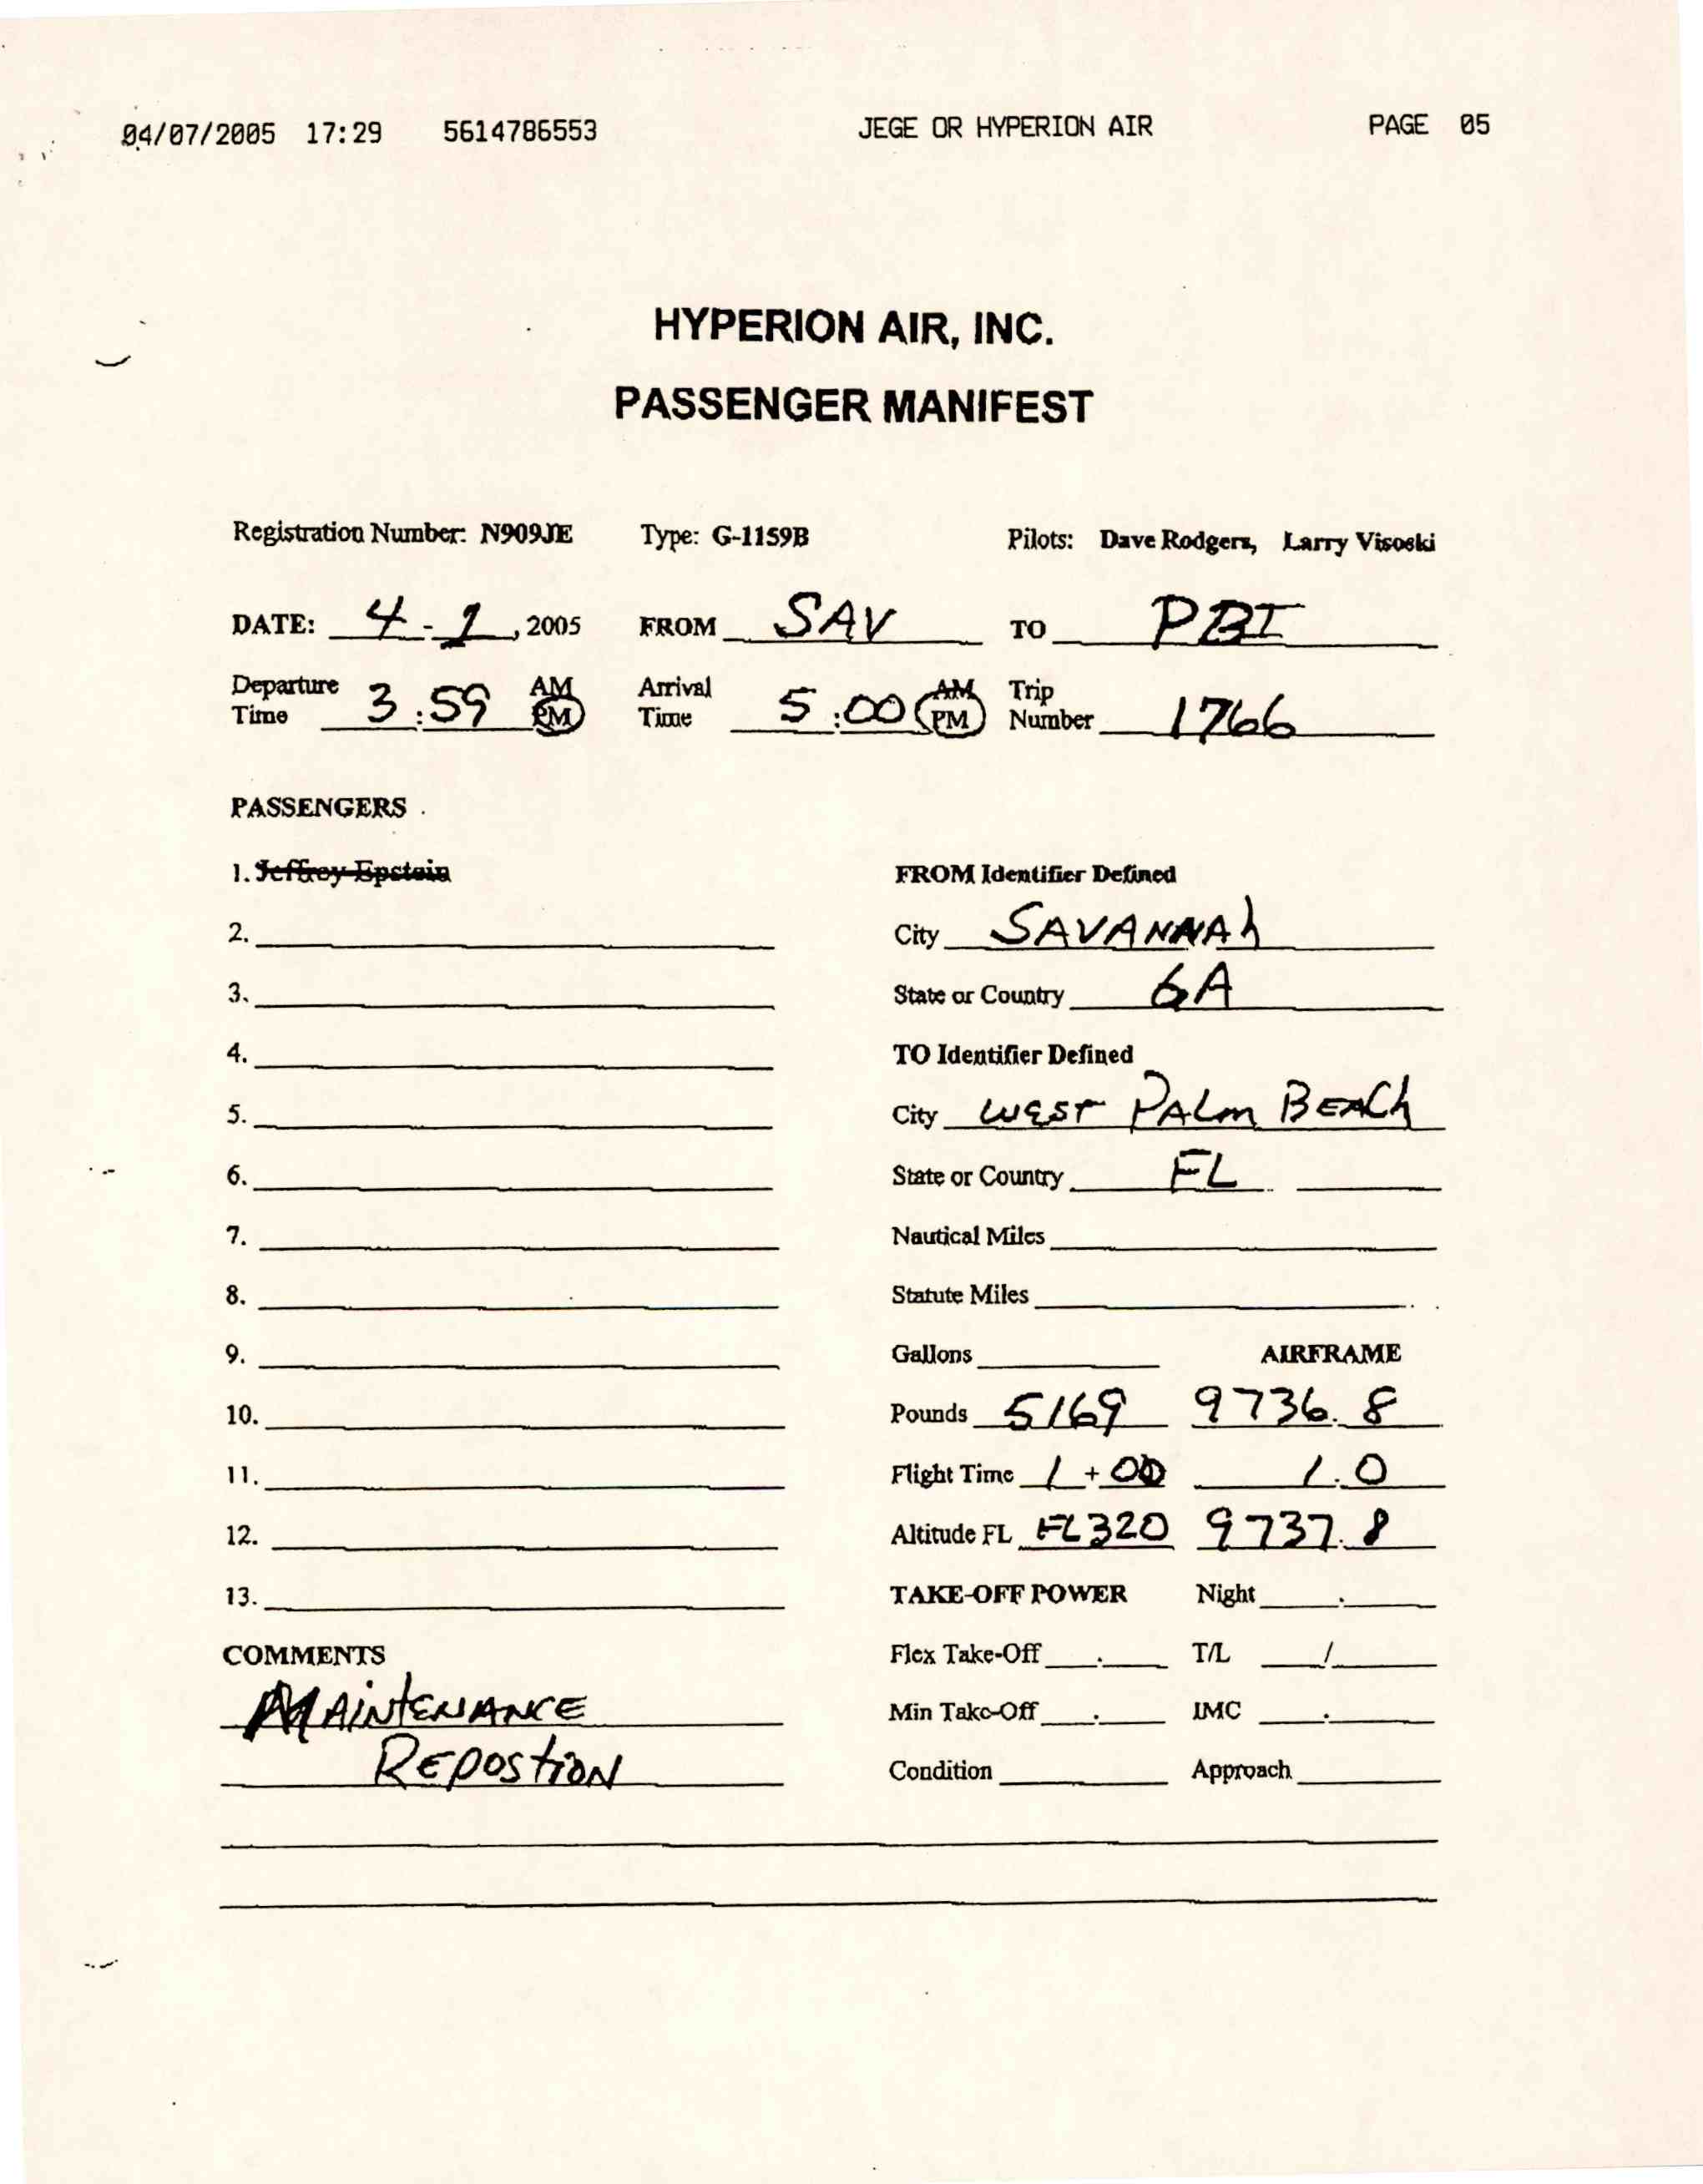 04/07/2005 17:29 5614786553 JEGE OR HYPERION AIR PAGE 05
HYPERION AIR, INC.
PASSENGER MANIFEST
Registration Number: N909JE Type: G-1159B Pilots: Dave Rodgers, Larry Visoski
DATE: 4-1, 2005 FROM SAV TO PBI
Departure Time 3:59 AM PM Arrival Time 5:00 AM PM Trip Number 1766
PASSENGERS
1. Jeffrey Epstein FROM Identifier Defined
2. City SAVANNAh
3. State or Country GA
4. TO Identifier Defined
5. City WEST PALm BEACh
6. State or Country FL
7. Nautical Miles
8. Statute Miles
9. Gallons AIRFRAME
10. Pounds 5169 9736.8
11. Flight Time 1+00 1.0
12. Altitude FL FL320 9737.8
13. TAKE-OFF POWER Night .
COMMENTS Flex Take-Off . T/L /
MAINtENANCE Min Take-Off . IMC .
REPOStiON Condition Approach